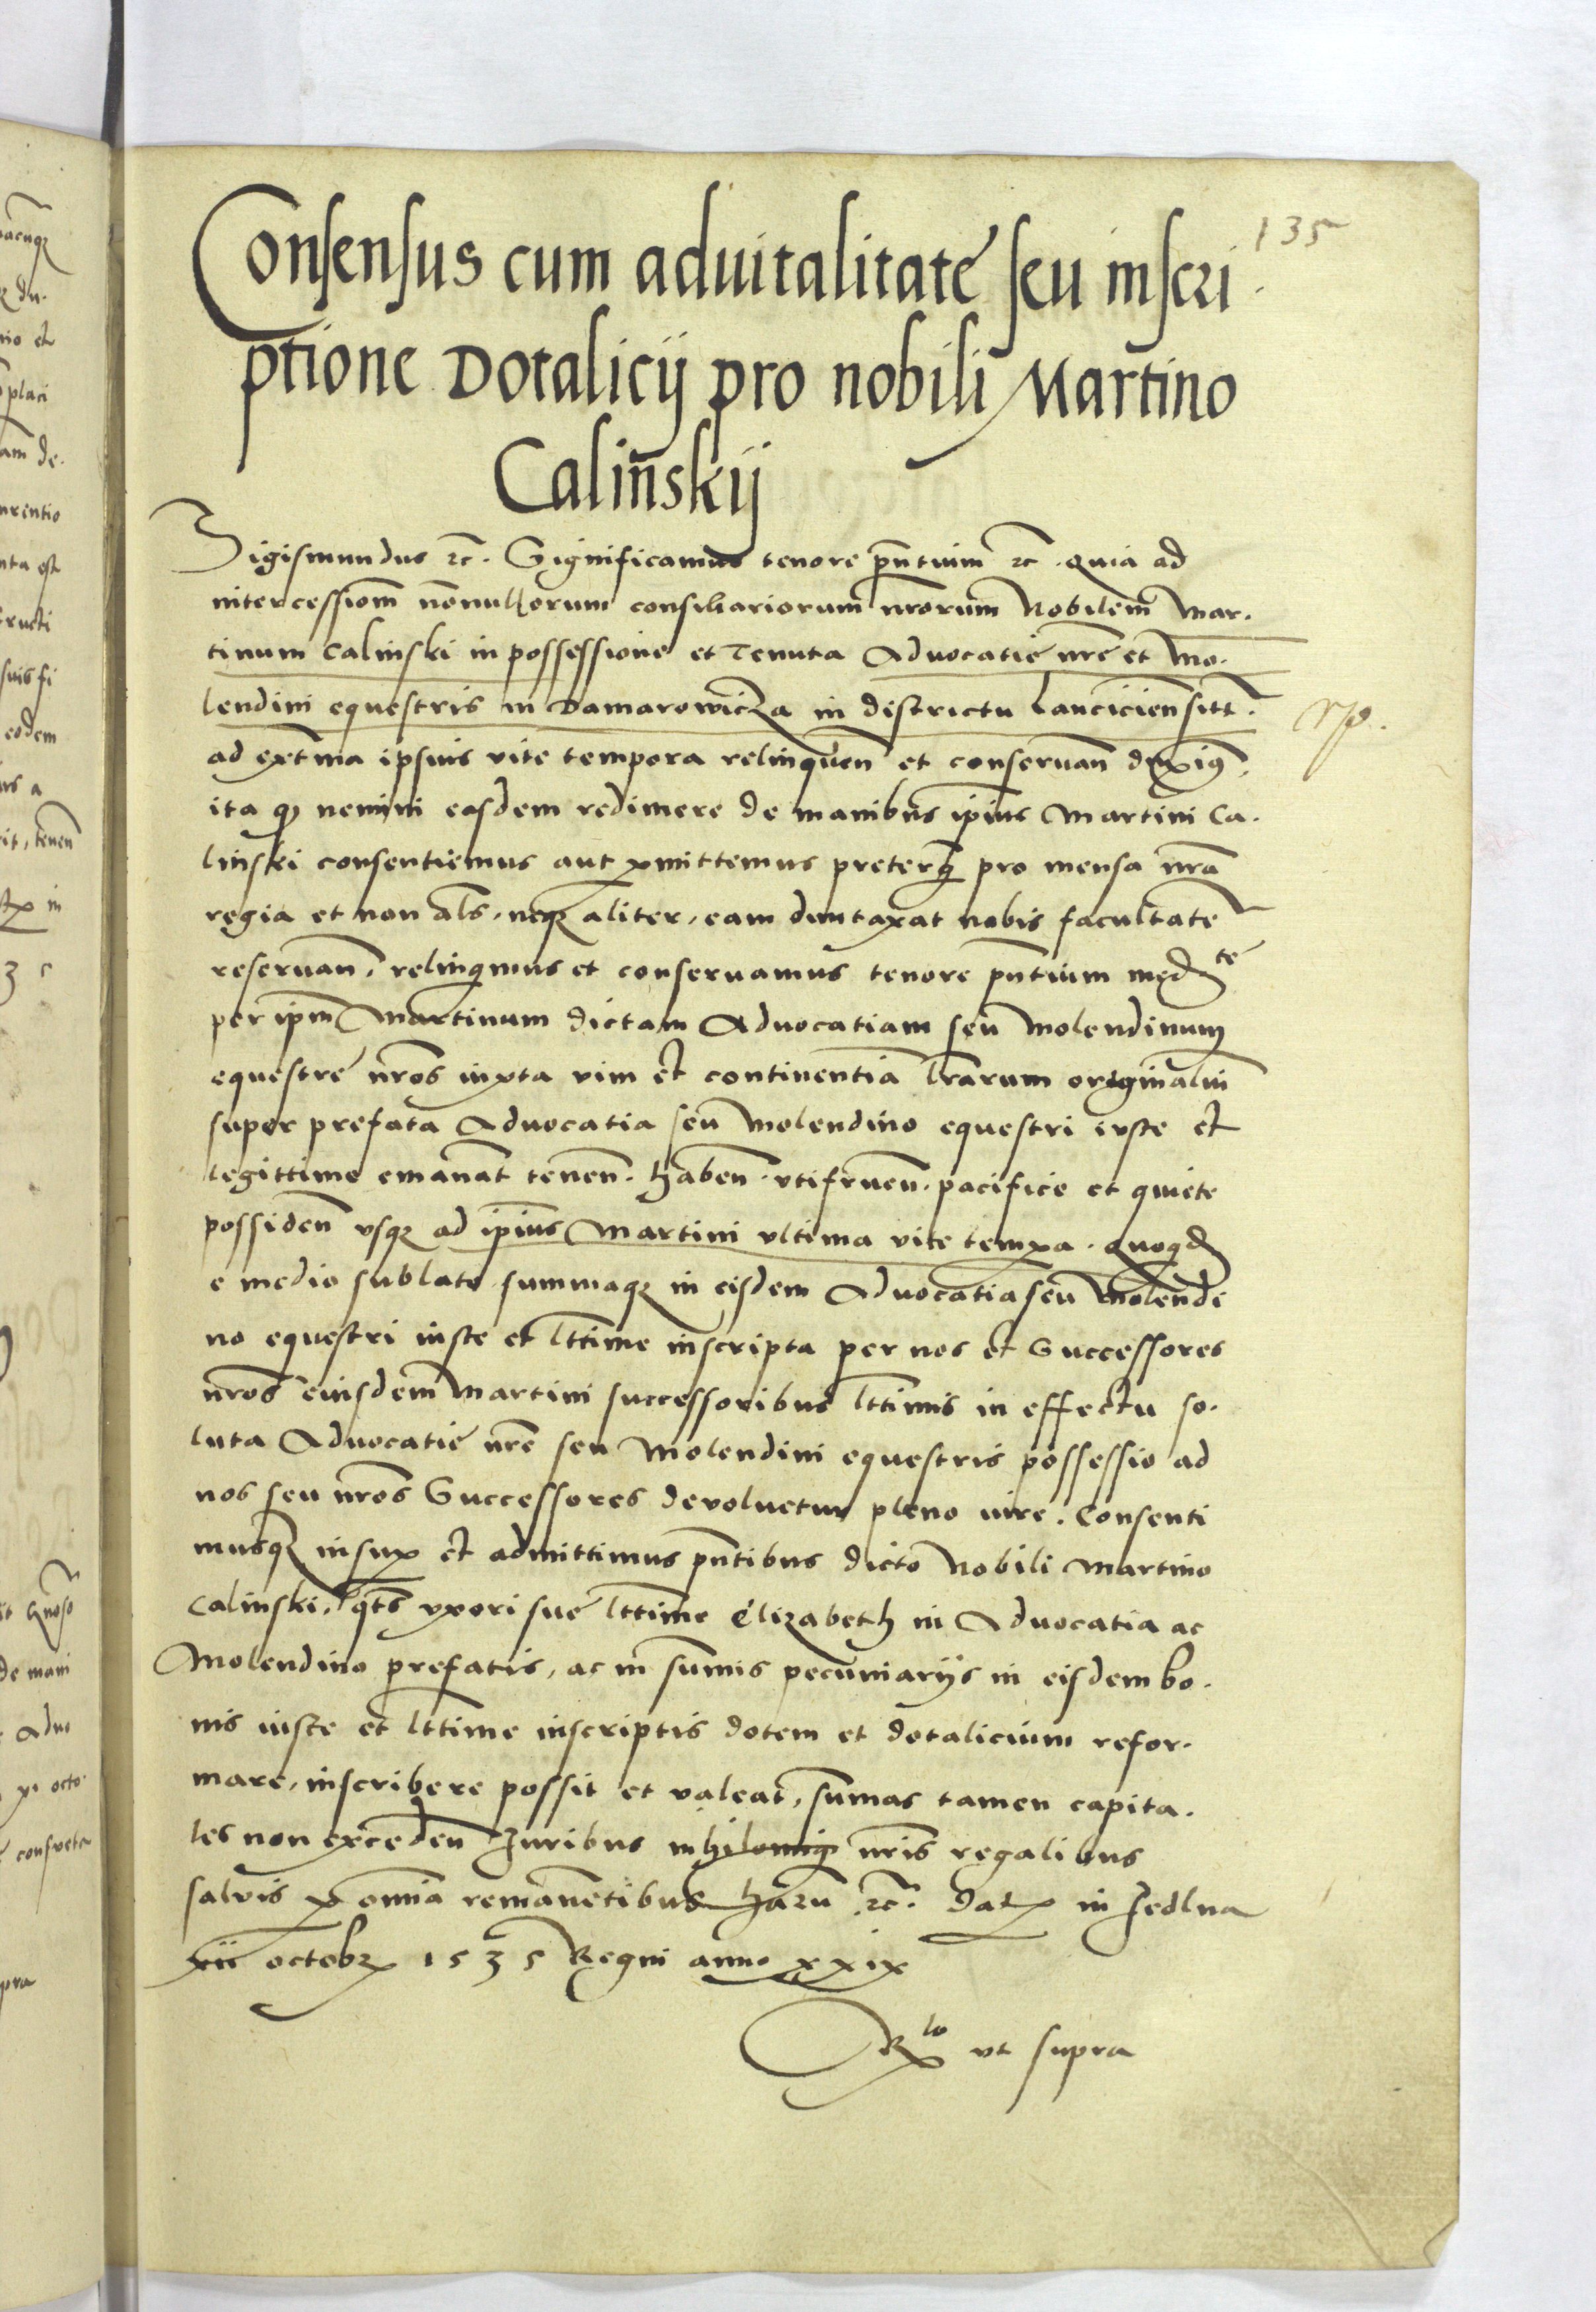 135
Consensus cum aduitalitate seu inscri
ptione Dotalicij pro nobili Martino
Calinskij
Sigismundus rc. Significamus tenore pñtium rc. quia ad
intercessiom̃ nonnullorum consiliariorum nrõrum Nobilem Mar.
tinum Calinski in possessione et Tenuta Aduocatie nrẽ et Mo.
lendini equestris in Damarowicza in districtu Lanciciensi sitt.
ad extĩma ipsius vite tempora relinqueñ et conseruañ duxim9
ita q nemini easdem redimere de manibus ip̃ius Martini Ca.
linski consentiemus aut pmittemus preterq̃ pro mensa nrã
regia et non al̃s, neq3 aliter, eam duntaxat nobis facultatẽ
reseruañ, relinquimus et conseruamus tenore pñtium medte
per ip̃m Martinum dictam Aduocatiam seu Molendinum
equestrẽ nrõs iuxta vim et continentiã lrãrum originaliũ
super prefata Aduocatia seu Molendino equestri iuste et
legittime emanat̃ teneñ. habeñ. vtifrueñ. pacifice et quiete
possideñ vsq3 ad ip̃ius Martini vltima vite tempa. quoqd
e medio sublato summaq3 in eisdem Aduocatia seu Molendi
no equestri iuste et lttĩme inscripta per nos et Successores
nrõs eiusdem Martini successoribus lttĩmis in effectu so.
luta Aduocatie nrẽ seu Molendini equestris possessio ad
nos seu nrõs Successores deuoluetur pleno iure. Consenti
musq3 insup et admittimus pñtibus dicto Nobili Martino
Calinski, q̃ts vxori sue lttĩme Elizabeth in Aduocatia ac
Molendino prefatis, ac in sum̃is pecuniarijs in eisdem bo.
nis iuste et lttĩme inscriptis dotem et dotalicium refor.
mare, inscribere possit et valeat, sum̃as tamen capita.
les non excedeñ Juribus nihilomi9 nrĩs regalibus
saluis p om̃ia remanẽtibus harũ rc. Dat in Jedlna
xii octobr 1535 Regni anno xxix
Rlo vt supra